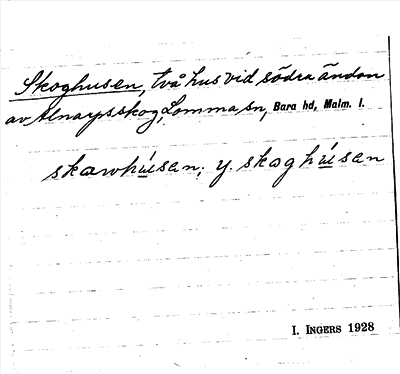 Skoghusen, två hus vid södra ändan
av Alnarpsskog, Lomma sn, Bara hd, Malm. l.
skawhúsen; y. skoghúsen
I. INGERS 1928